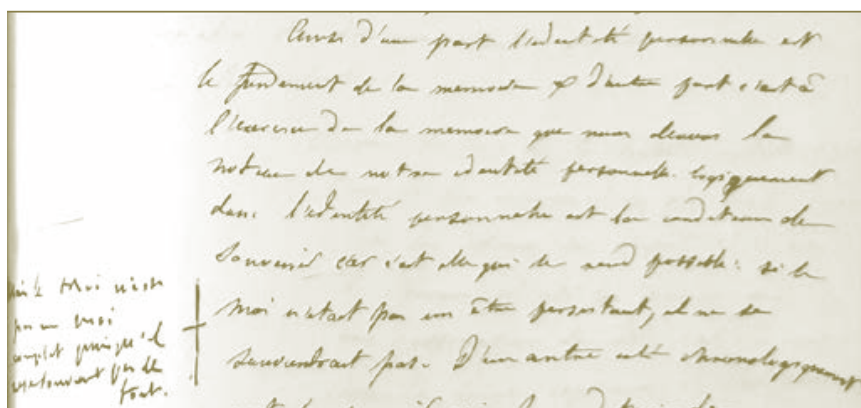 Ainsi d'une part l'identité personnelle est
le fondement de la memoire & d'autre part c'est à
l'exercice de la memoire que nous devons la
notion de notre identité personnelle. logiquement
donc l'identité personnelle est la condition du
souvenir car c'est elle qui le rend possible : si le
moi n'était pas un être persistant, il ne se
souviendrait pas. D'un autre côté chronologiquement
Moi n'est
pas un moi
complet puisqu'il
ne se souvient pas de
tout.